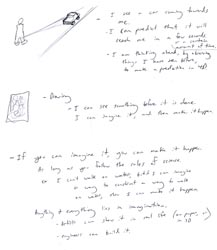 - I see a car coming towards
me.
- I can predict that it will
reach me in a few seconds
or a certain
amount of time.
- I am thinking ahead, by observing
things I have seen before,
to make a prediction in
- Drawing
- I can see something before it is done.
I can imagine it, and then make it happen.
- If you can imagine it, you can make it happen.
As long as you follow the rules of science.
ex I can't walk on water, but if I can imagine
a way to construct a way to walk
on water, then I can make it happen.
Anything & everything lies in imagination.
- Artists can show it in real life (on paper, or
in 3D
- engineers can build it.